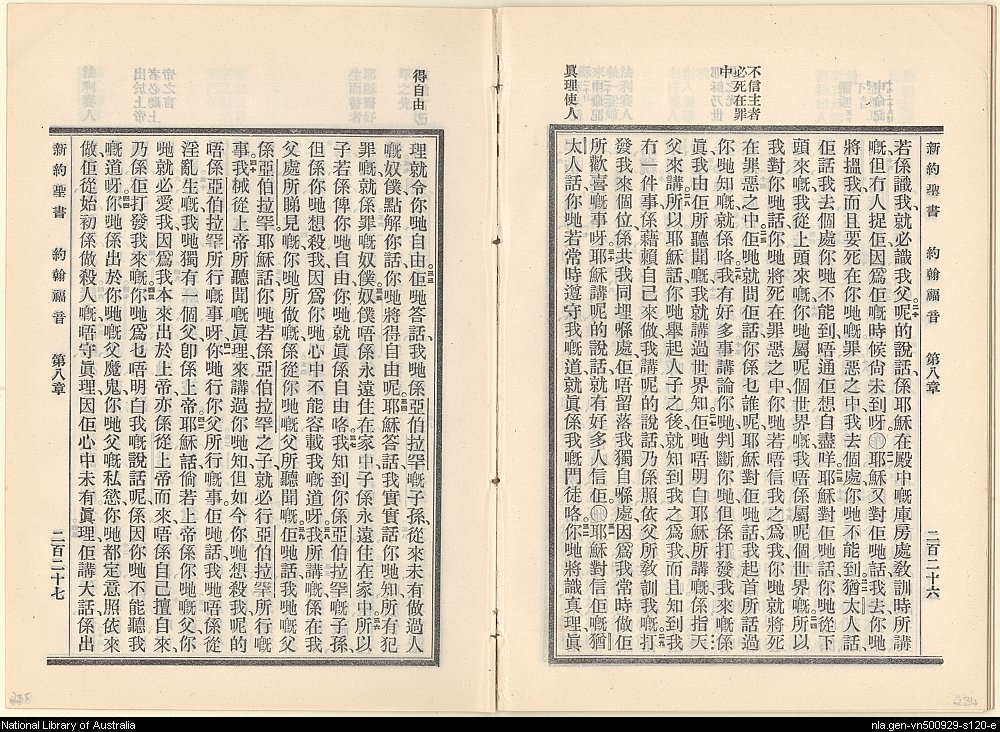 新約聖書 約翰福音 第八章 二百二十六
不信主者
必死在罪
中
眞理使人
若係識我、就必識我父呢的說話、係耶穌在殿中嘅庫房處敎訓時所講
嘅但冇人捉佢因爲佢嘅時候尙未到呀耶穌又對佢哋話我去你哋
將搵我而且要死在你哋嘅罪惡之中我去個處你哋不能到猶太人話
佢話我去個處你哋不能到唔通佢想自盡咩耶穌對佢哋話你哋從下
頭來嘅我從上頭來嘅你哋屬呢個世界嘅我唔係屬呢個世界嘅所以
我對你哋話你哋將死在罪惡之中你哋若唔信我之爲我你哋就將死
在罪惡之中佢哋就問佢話你係乜誰呢耶穌對佢哋話我起首所話過
你哋知嘅就係咯我有好多事講論你哋判斷你哋但係打發我來嘅係
眞我由佢所聽聞嘅我就講過世界知佢哋唔明白耶穌所講嘅係指天
父來講所以耶穌話你哋舉起人子之後就知到我之爲我而且知到我
有一件事係藉賴自己來做我講呢的說話乃係照依父所敎訓我嘅打
發我來個位係共我同埋喺處佢唔留落我獨自喺處因爲我常時做佢
所歡喜嘅事呀耶穌講呢的說話就有好多人信佢耶穌對信佢嘅猶
太人話你哋若常時遵守我嘅道就眞係我嘅門徒咯你哋將識真理眞
得自由
理就令你哋自由佢哋答話我哋係亞伯拉罕嘅子孫從來未有做過人
嘅奴僕點解你話你哋將得自由呢耶穌答話我實實話你哋知所有犯
罪嘅就係罪嘅奴僕奴僕唔係永遠住在家中子係永遠住在家中所以
子若係俾你哋自由你哋就眞係自由咯我知到你係亞伯拉罕嘅子孫
但係你哋想殺我因爲你哋心中不能容載我嘅道呀我所講嘅係在我
父處所睇見嘅你哋所做嘅係從你哋嘅父所聽聞嘅佢哋話我哋嘅父
係亞伯拉罕耶穌話你哋若係亞伯拉罕之子就必行亞伯拉罕所行嘅
事我械從上帝所聽聞嘅眞理來講過你哋知但如今你哋想殺我呢的
唔係亞伯拉罕所行嘅事呀你哋行你父所行嘅事佢哋話我哋唔係從
淫亂生嘅我哋獨有一個父卽係上帝耶穌話倘若上帝係你哋嘅父你
哋就必愛我因爲我本來出於上帝亦係從上帝而來唔係自己擅自來
乃係佢打發我來嘅你哋爲乜唔明白我嘅說話呢係因你哋不能聽我
嘅道呀你哋係出於你哋嘅父魔鬼你哋父嘅私慾你哋都定意照依來
做佢從始初係做殺人嘅唔守眞理因佢心中未有眞理佢講大話係出
新約聖書 約翰福音 第八章 二百二十七
234
National Library of Australia
nla.gen-vn500929-s120-e